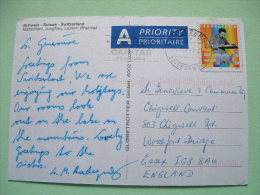 Schweiz - Suisse - Switzerland
Matterhorn, Jungfrau, Luzern, Rheinfall
A PRIORITY
PRIORITAIRE
CARITAS
Sr. Genevieve
Greetings from
Switzerland. We are
enjoying our holidays.
Our rooms look
out on the lake in
the mountains. Lovely
Greetings to the
Sisters.
Sr. M.
GLOBETROTTER GmbH, 6002
Sr Genevieve & Community
Chigwell Convent
803 Chigwell Rd
Woodford Bridge
Essex IG8 8AU
ENGLAND